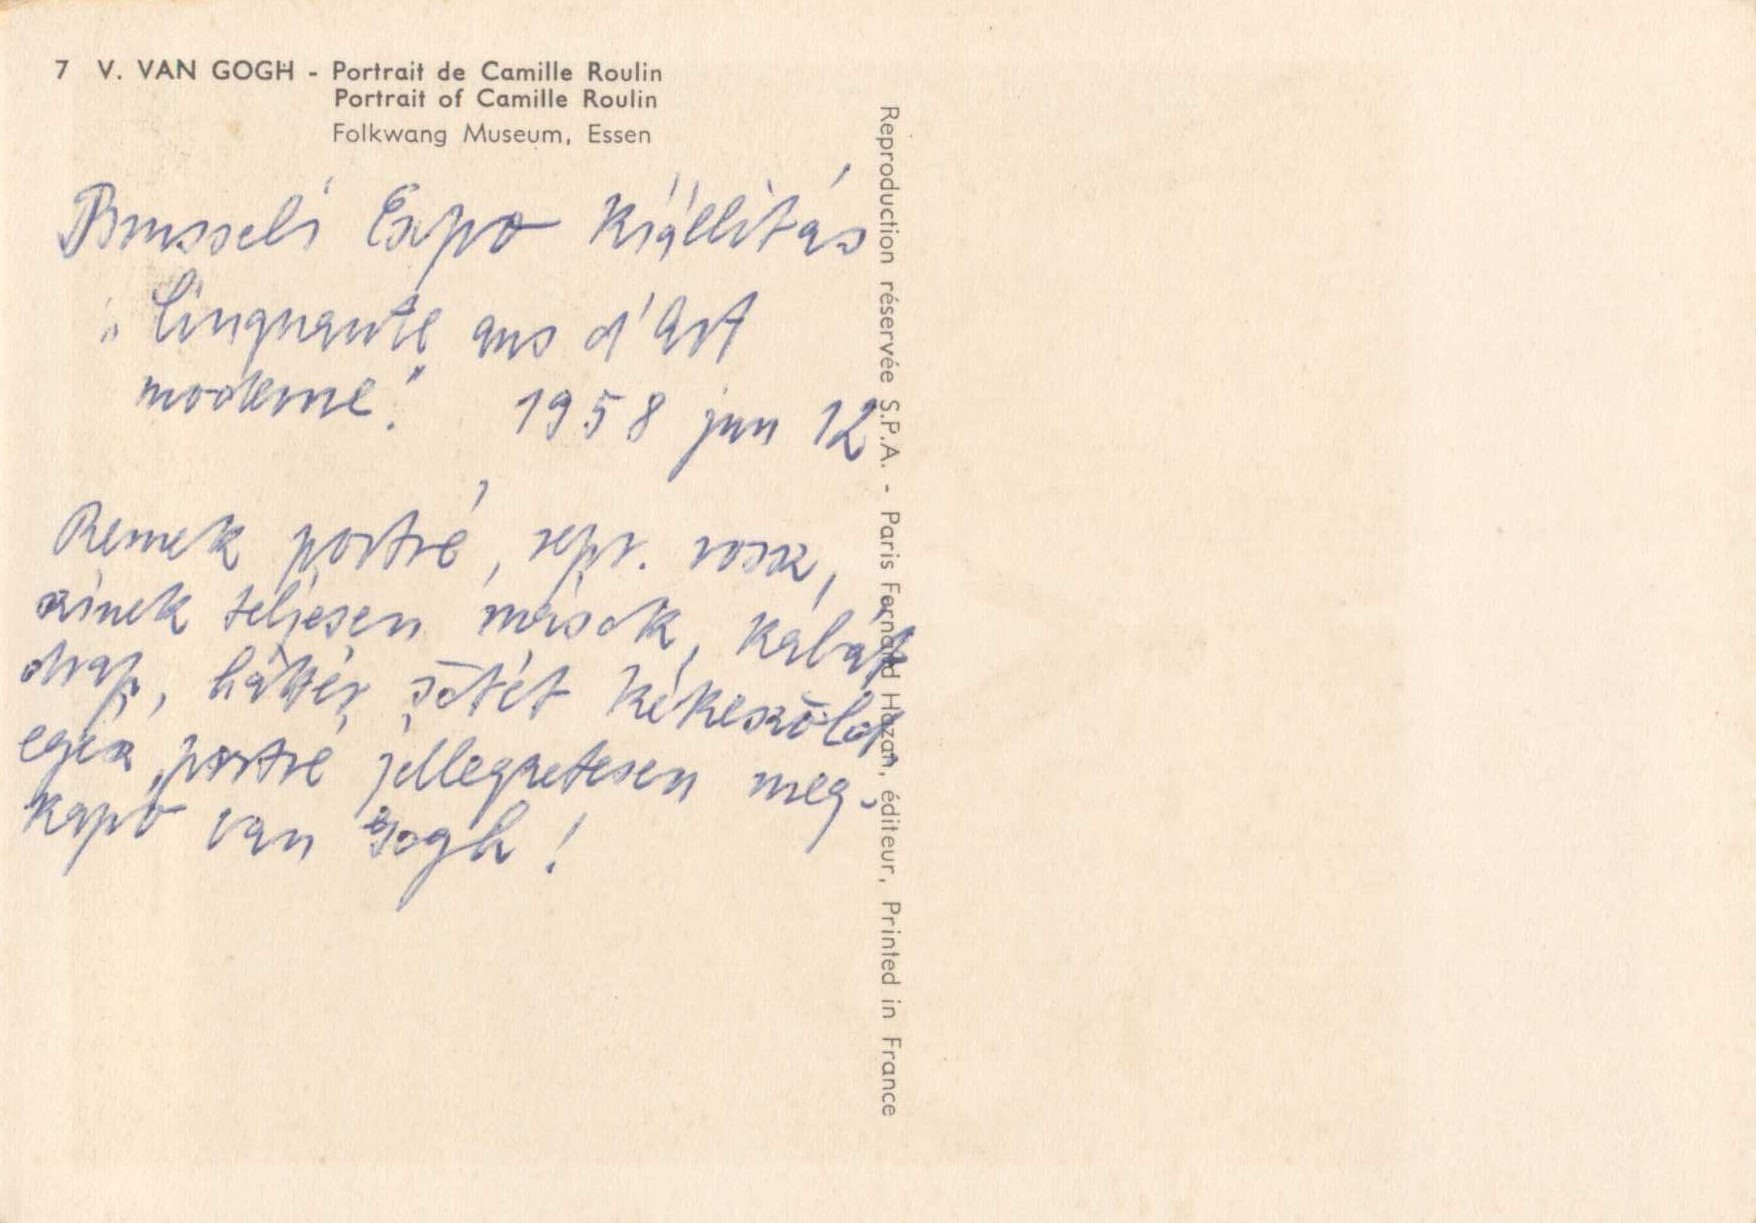 7 V. VAN GOGH - Portrait de Camille Roulin
Portrait of Camille Roulin
Folkwang Museum, Essen
Brusseli Expo Kiállitás
„Cinquante ans d'Art
moderne." 1958 jun 12
Remek portré, repr. rossz,
szinek teljesen mások, kabát
drap, háttér sötét kékeszöld,
egész portré jellegzetesen meg-
kapó van Gogh!
Reproduction réservée S.P.A. - Paris Fernand Hazan, éditeur, Printed in France